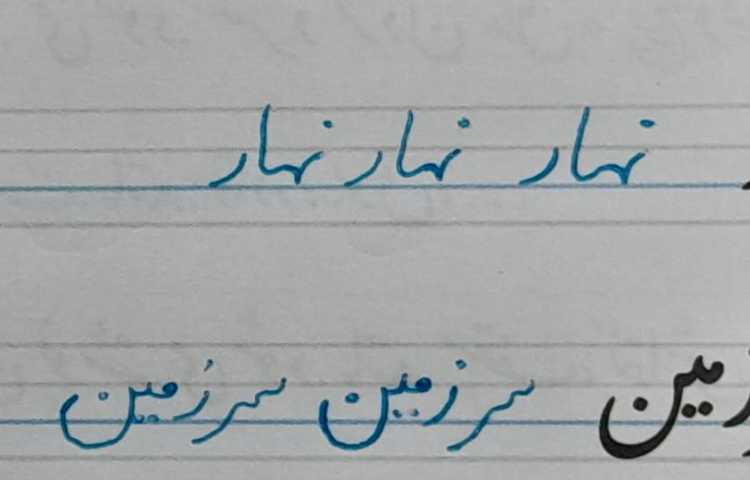 نهار نهار نهار
سرزمین سرزمین